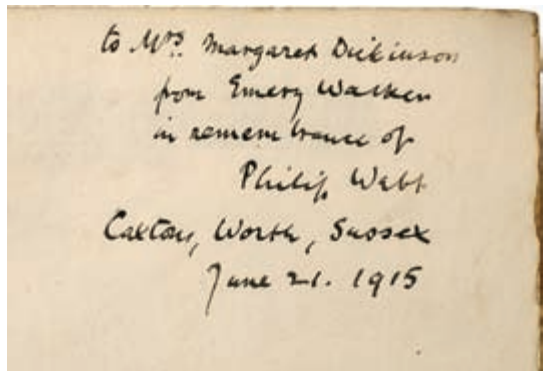 to Mrs. Margaret Dickinson
from Emery Walker
in remembrance of
Philip Webb
Caxtons, Worth, Sussex
June 21. 1915